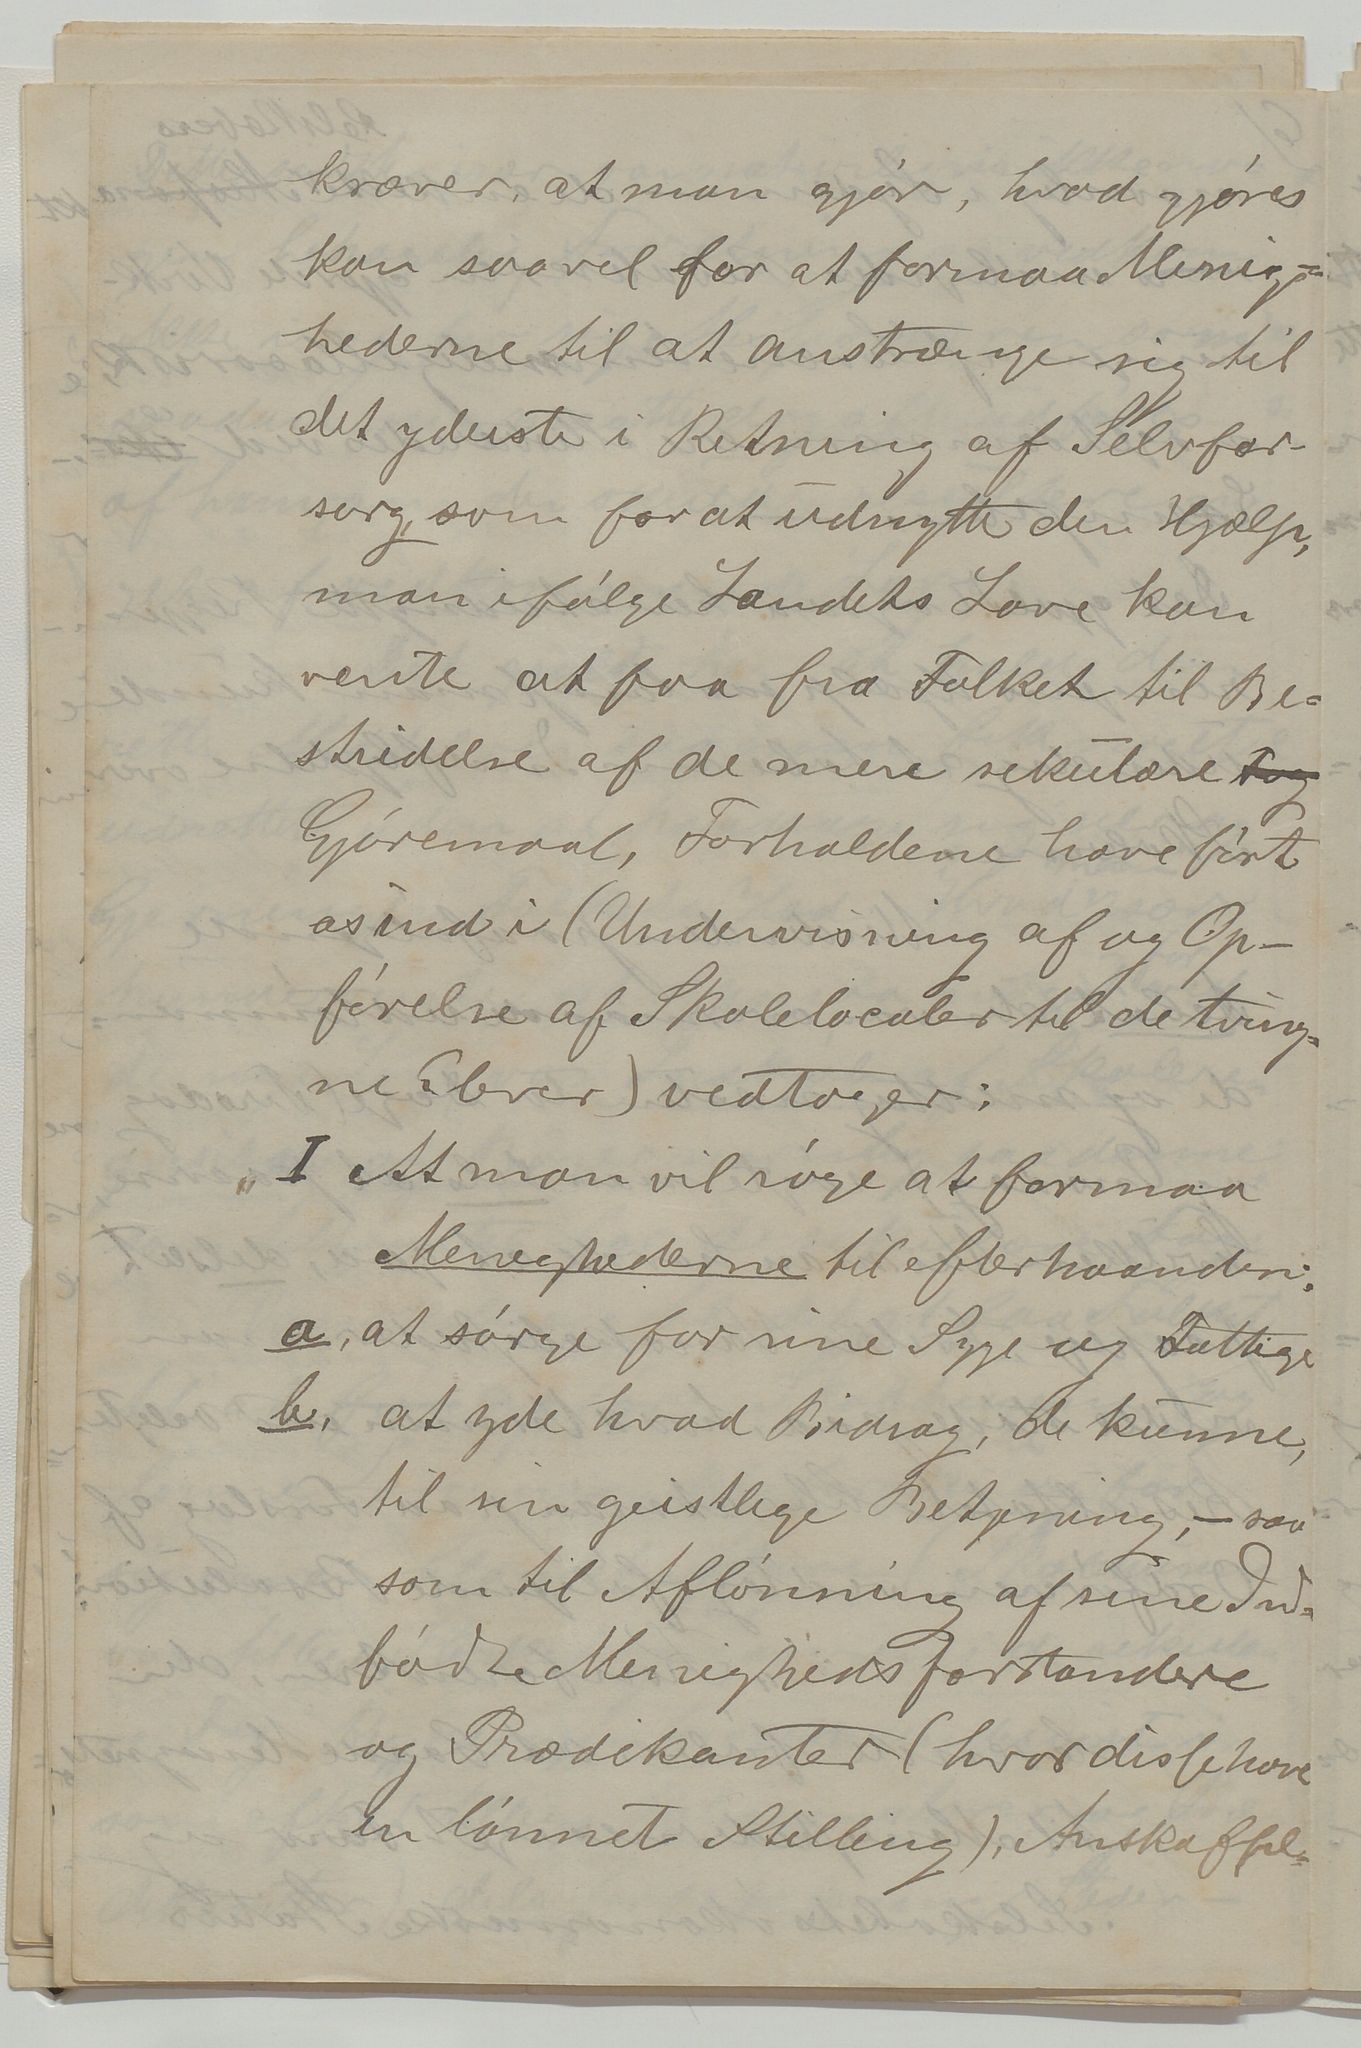 kræver, at man gjør, hvad gjøres
kan saavel for at formaa Menig-
hederne til at anstrænge sig til
det yderste i Retning af Selvfor-
sorg, som for at udnytte den Hjælp,
man ifølge Landets Love kan
vente at faa fra Folket til Be-
stridelse af de mere sekulære
Gjøremaal, Forholdene have ført
os ind i (Undervisning af og Op-
førelse af Skolelocaler til de tvung-
ne Elever) vedtager:
„I At man vil søge at formaa
Menighederne til efterhaanden:
a, at sørge for sine Syge og Fattige
b, at yde hvad Bidrag, de kunne,
til sin geistlige Betjening, – saa
som til Aflønning af sine Ind-
fødte Menighedsforstandere
og Prædikanter (hvor disse have
en lønnet Stilling), Anskaffel-